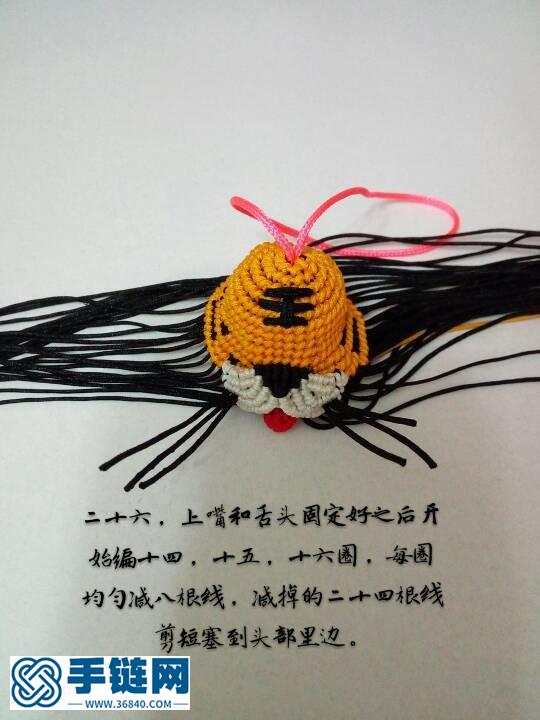 二十六，上嘴和舌头固定好之后开
始编十四，十五，十六圈，每圈
均匀减八根线，减掉的二十四根线
剪短塞到头部里边。
手链网
WWW.36840.COM